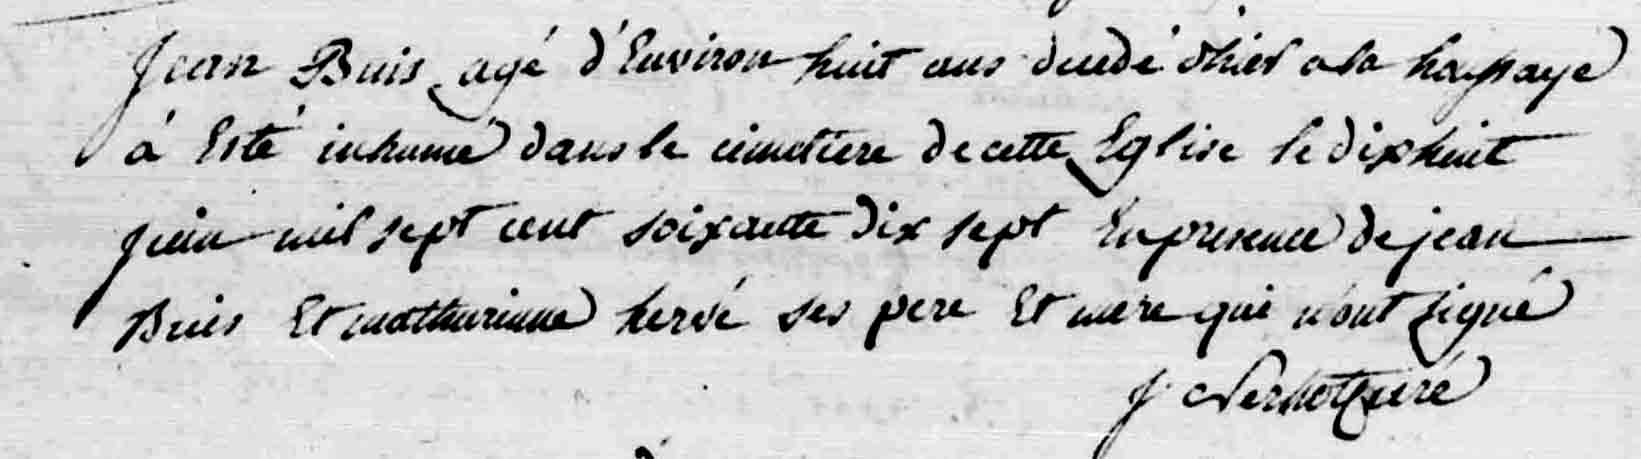 Jean Buis agé d'Environ huit ans decedé d'hier a la haypaye
á Esté inhumé dans le cimetiere de cette Eglise le dixhuit
juin mil sept cent soixante dix sept En presence de jean
Buis Et mathurinne hervé ses pere Et mere qui n'ont signé
J.